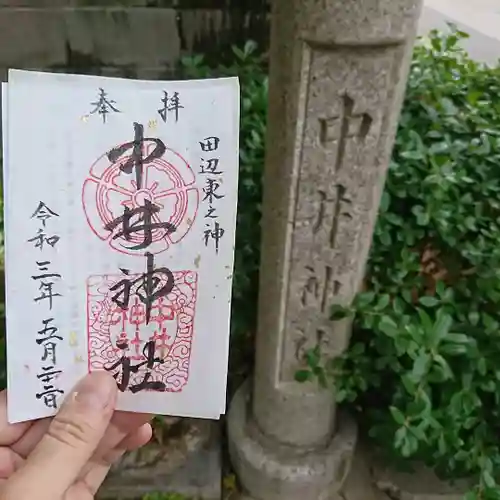 奉拝
田辺東之神
中井神社
中井神社
令和三年五月二十二日
中井神社